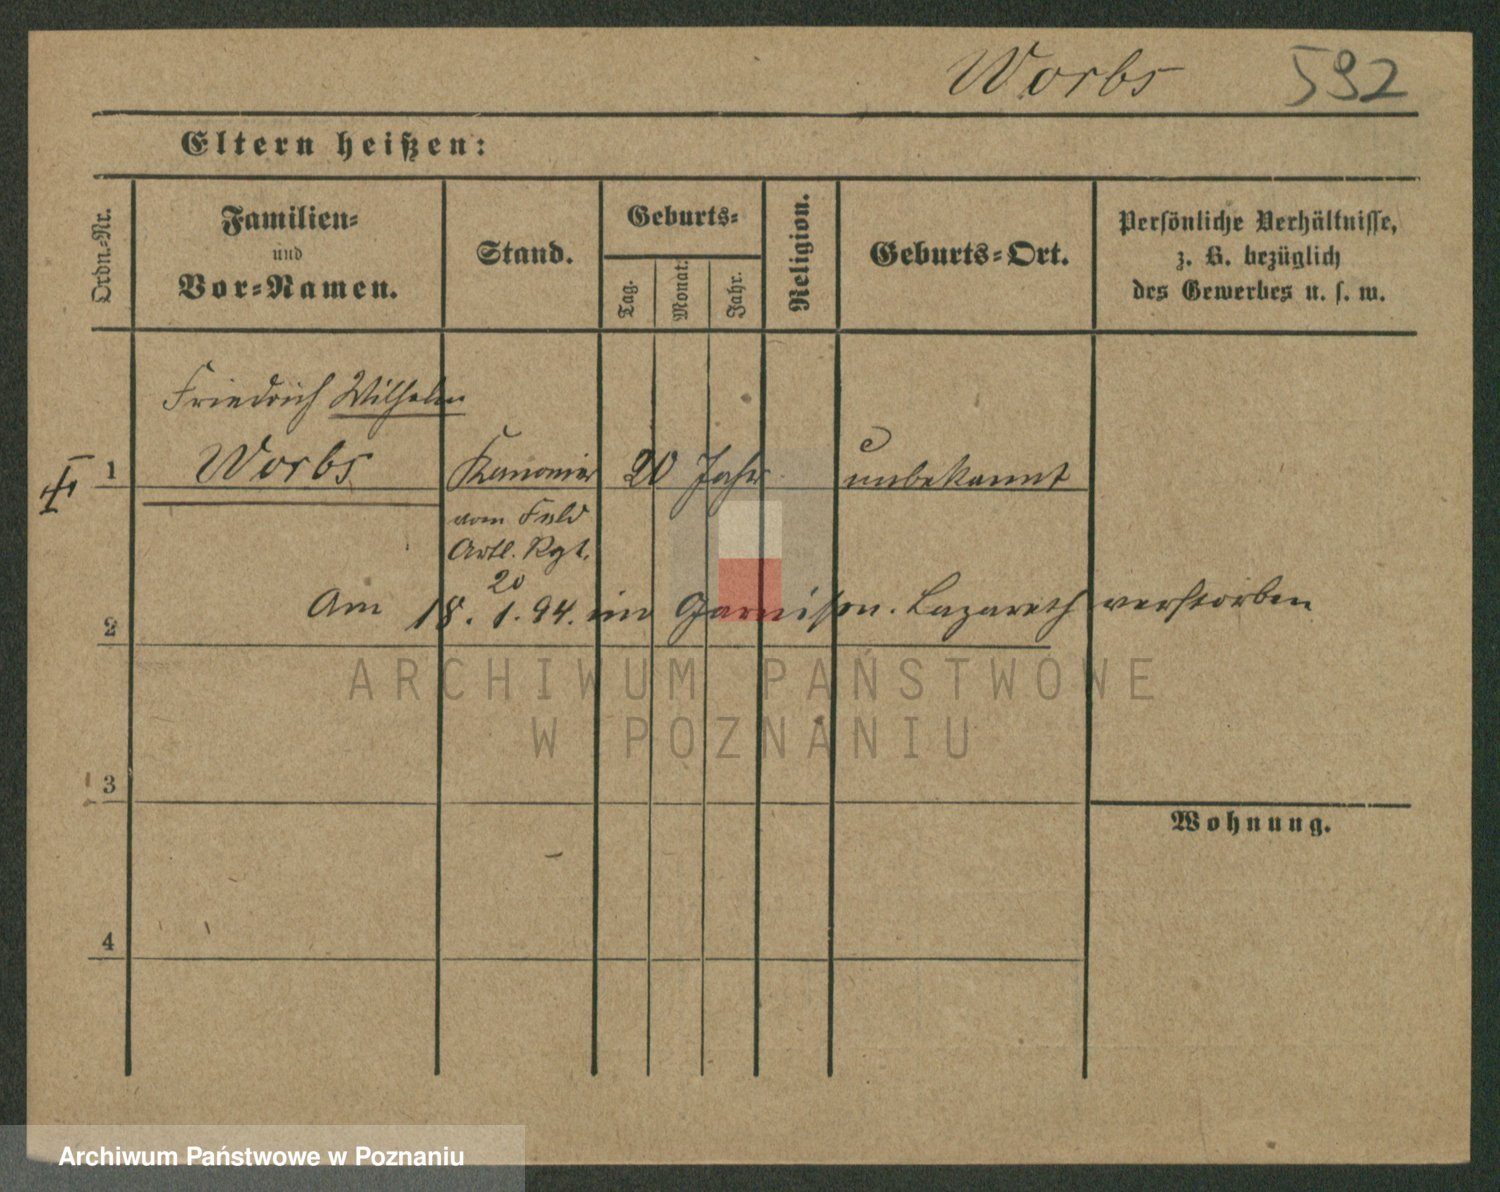 Worbs 592
Eltern heißen:
Ordn.-Nr.
Familien-
und
Vor-Namen.
Stand.
Geburts-
Tag.
Monat.
Jahr.
Religion.
Geburts-Ort.
Persönliche Verhältnisse,
z. B. bezüglich
des Gewerbes u. s. w.
Friedrich Wilhelm
1 Worbs Kanonier 20 Jahr unbekannt
vom Feld
Artl. Rgt.
20
Am 18. 1. 94. im Garnison. Lazareth verstorben
2
ARCHIWUM PAŃSTWOWE
W POZNANIU
3
Wohnung.
4
Archiwum Państwowe w Poznaniu